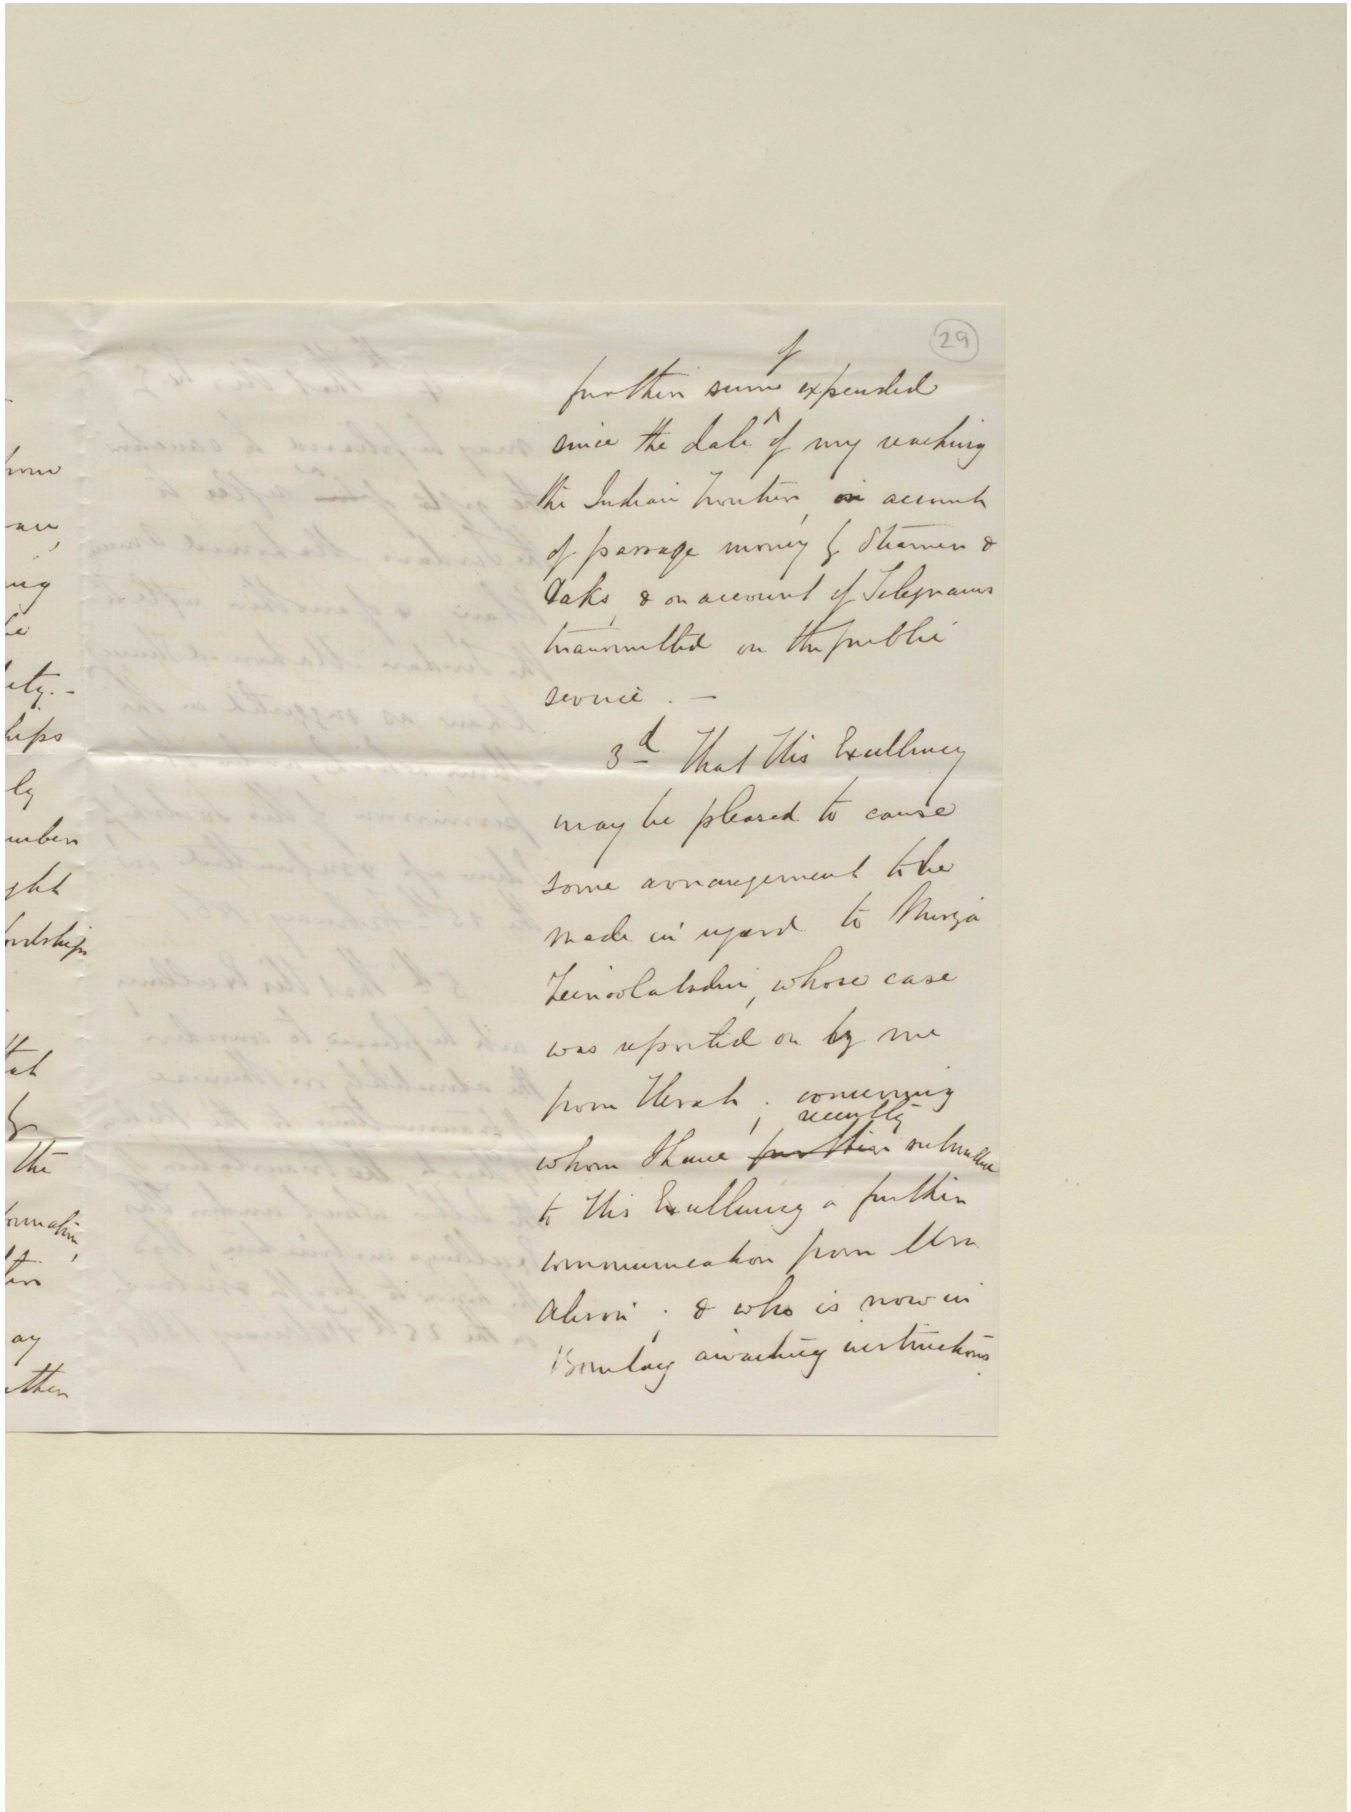 29
of
further sum expended
since the date of my reaching
the Indian frontier, on account
of passage money by Steamer &
Daks, & on account of Telegrams
transmitted on the public
service. —
3d That His Excellency
may be pleased to cause
some arrangement to be
made in regard to Mirza
whose case
was reported on by me
from Herat; concerning
recently
whom I have further submitted
to His Excellency a further
communication from
; & who is now in
Bombay awaiting instructions.
ety. -
ly
ght
ordships
the
ormation,
ay